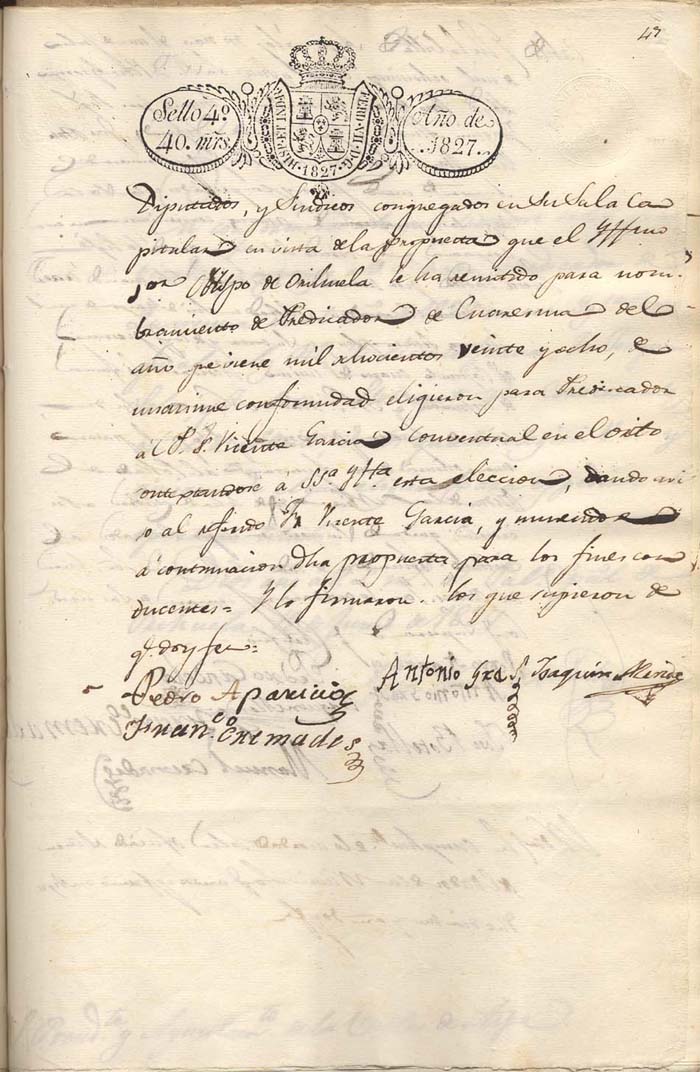 43
Sello 4º
40. mrs.
HISP. ET IND. R.
FERD. VII. D.G.
1827
Año de
1827.
Diputados, y Sindicos congregados en Su Sala Ca
pitular en vista de la propuesta que el Yllmo
Sor Obispo de Orihuela le ha remitido para nom-
bramiento de Predicador de Cuaresma del
año que viene mil ochocientos veinte y ocho, de
unanime conformidad eligieron para Predicador
al P. F. Vicente Garcia Conventual en el
á SSª Yltª esta eleccion, dando avi
so al referido Fr Vicente Garcia, y uniendose
á continuacion dha propuesta para los fines con
ducentes= Y lo firmaron los que supieron de
q. doy fee=
Pedro Aparicio
Antonio Joaquin
Franco Cremades